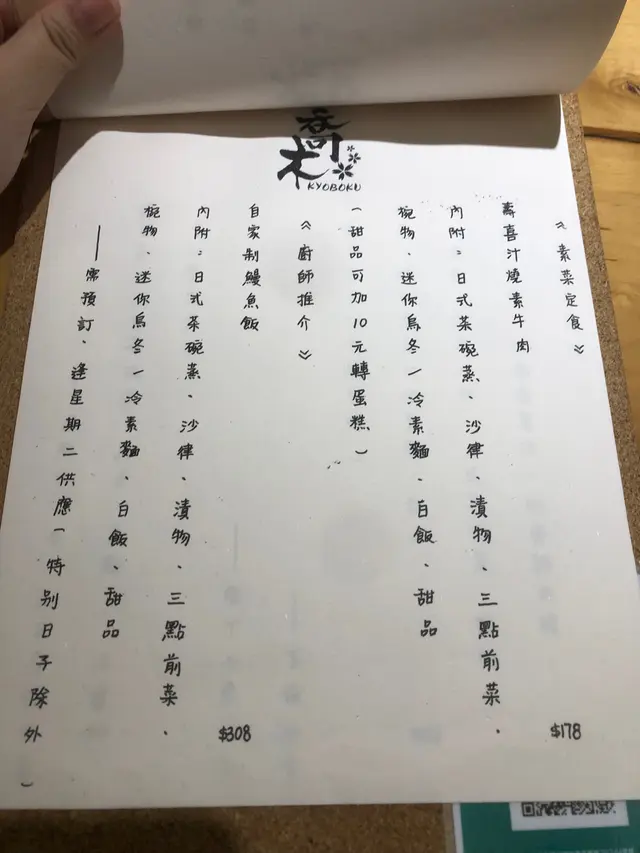 喬木
KYOBOKU
《素菜定食》
壽喜汁燒素牛肉
$178
內附：日式茶碗蒸、沙律、漬物、三點前菜、
椀物、迷你烏冬/冷素麵、白飯、甜品
(甜品可加10元轉蛋糕)
《廚師推介》
自家制鰻魚飯
$308
內附：日式茶碗蒸、沙律、漬物、三點前菜、
椀物、迷你烏冬/冷素麵、白飯、甜品
——需預訂、逢星期二供應(特別日子除外)